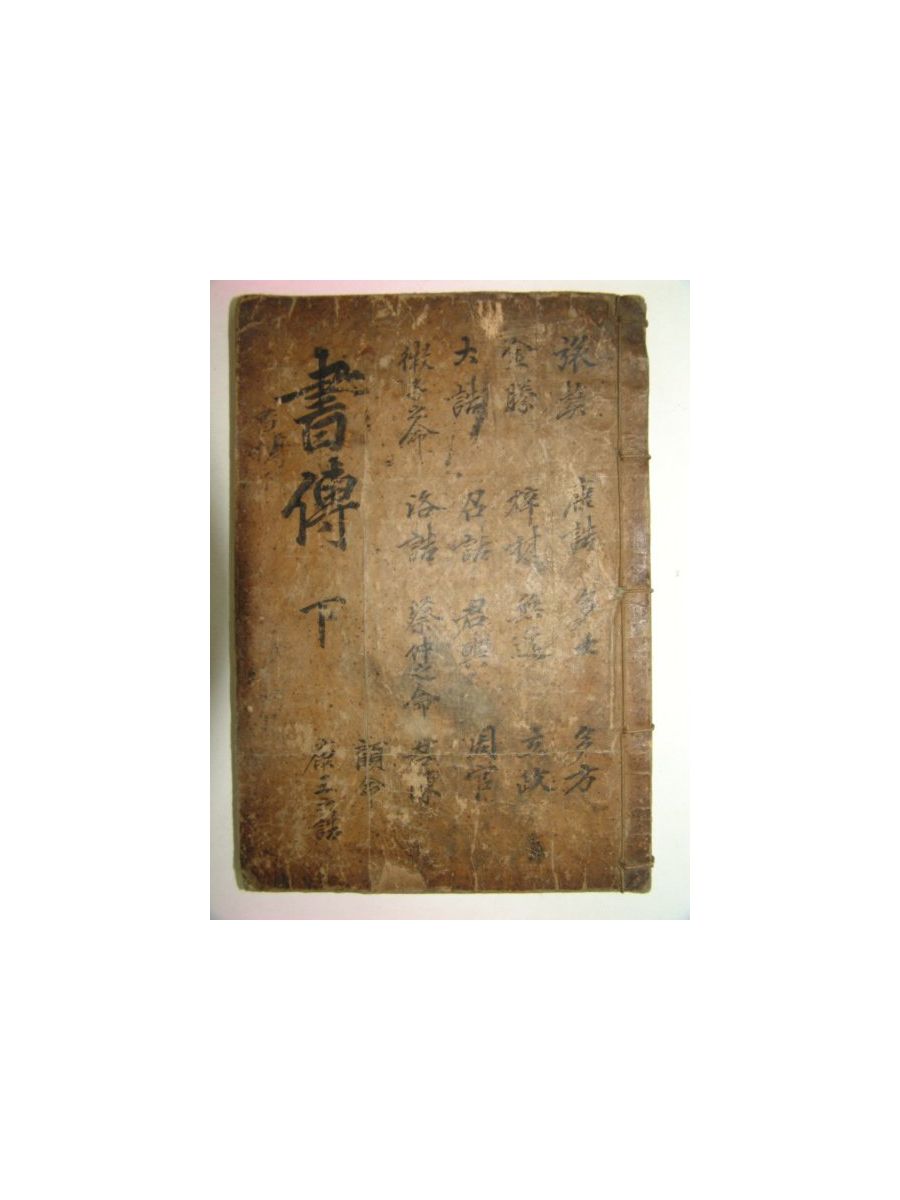 旅獒 康誥 多士 多方
金縢 梓材 無逸 立政
大誥 召誥 君奭 周官
微子之命 洛誥 蔡仲之命 君陳
顧命
康王之誥
書傳 下